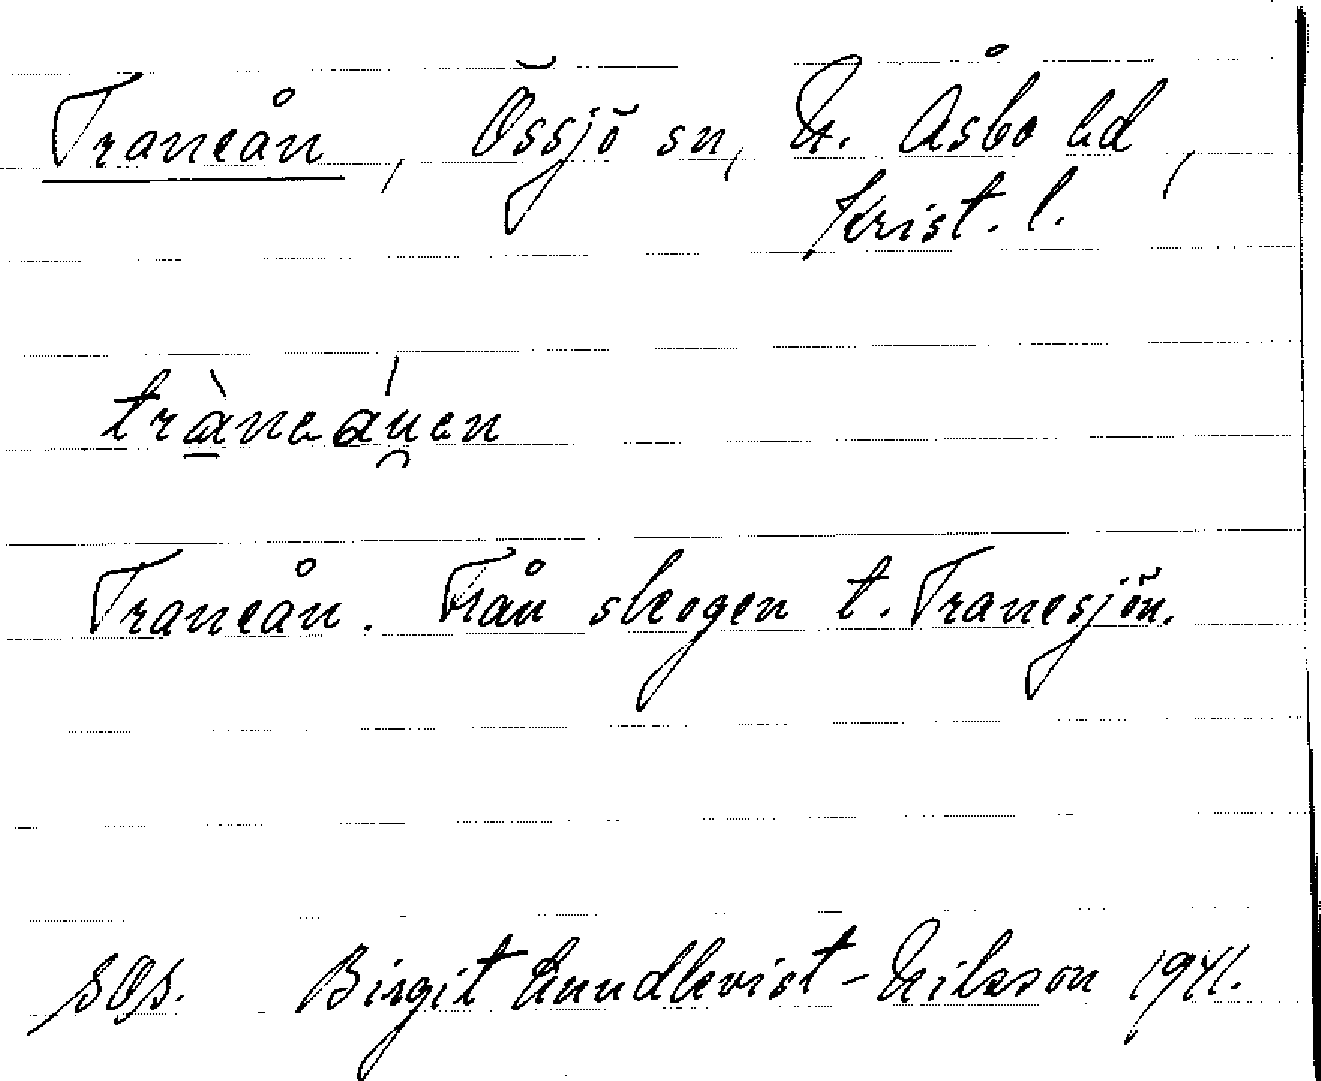 Traneån, Össjö sn, N. Åsbo hd,
Krist. l.
trànaáuen
Traneån. Från skogen t. Tranesjön.
SOS. Birgit Lundkvist-Nilsson 1941.